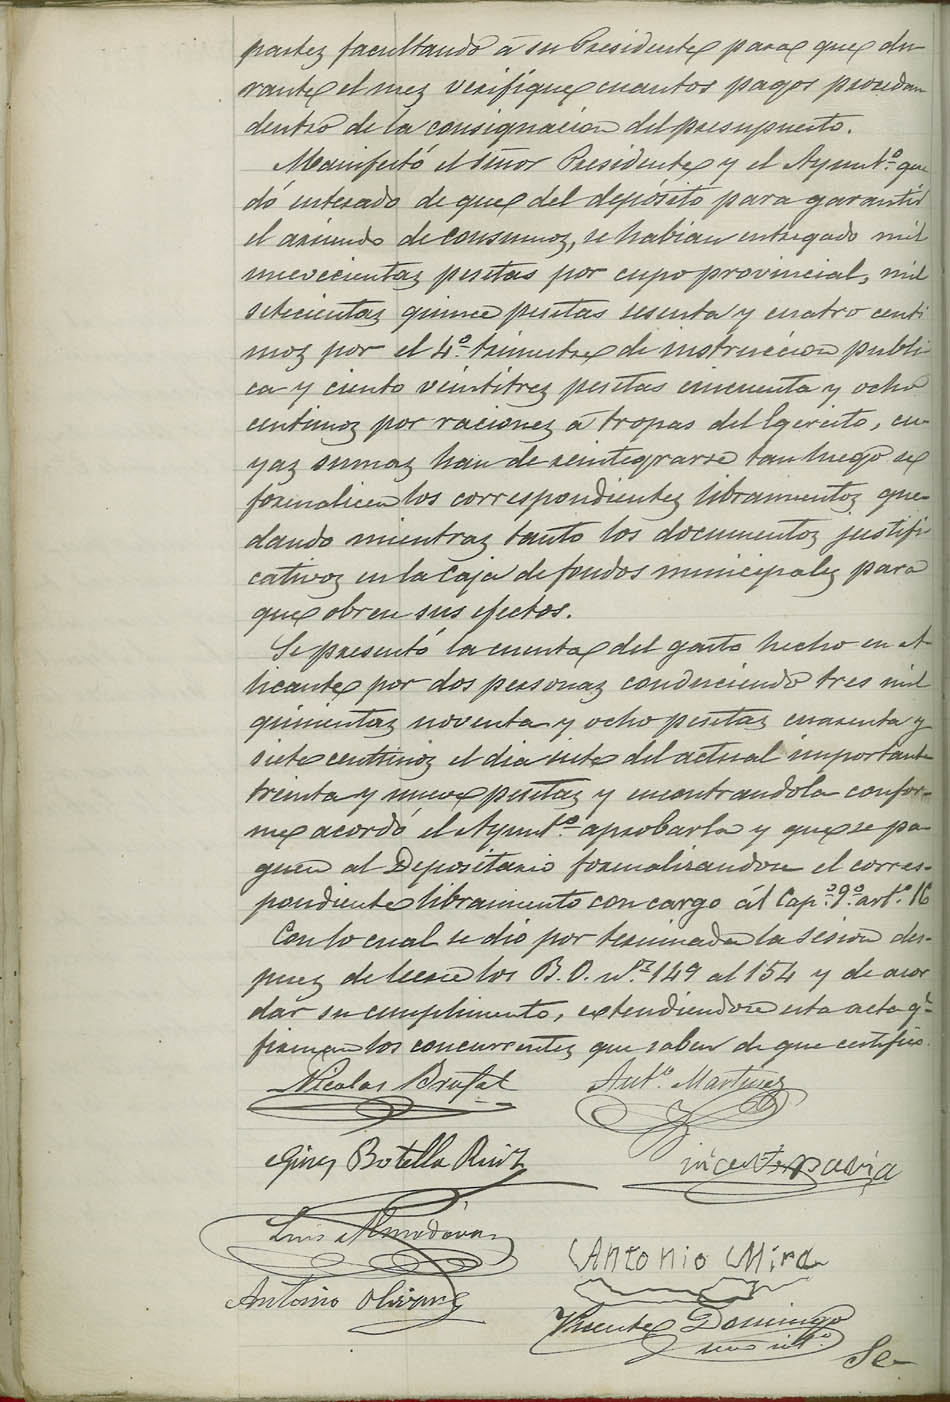 partes facultando á su Presidente para que du-
rante el mes verifique cuantos pagos procedan
dentro de la consignacion del presupuesto.
Manifestó el Señor Presidente y el Ayuntº. que
dó enterado de que del depósito para garantir
el arriendo de consumos, se habian entregado mil
nuevecientas pesetas por cupo provincial, mil
setecientas quince pesetas sesenta y cuatro centi
mos por el 4º. trimestre de instruccion publi
ca y ciento veintitres pesetas cincuenta y ocho
centimos por raciones á tropas del Egercito, cu-
yas sumas han de reintegrarse tan luego se
formalicen los correspondientes libramientos que-
dando mientras tanto los documentos justifi
cativos en la Caja de fondos municipales para
que obren sus efectos.
Se presentó la cuenta del gasto hecho en A-
licante por dos personas conduciendo tres mil
quinientas noventa y ocho pesetas cuarenta y
siete centimos el dia siete del actual importante
treinta y nueve pesetas y encontrandola confor-
me acordó el Ayuntº. aprobarla y que se pa-
guen al Depositario formalizandose el corres-
pondiente libramiento con cargo ál Capº. 9º. artº. 16
Con lo cual se dió por terminada la sesion des-
pues de leerse los B. O. nºs 149 al 154 y de acor
dar su cumplimento, extendiendose esta acta q.
firman los concurrentes que saben de que certifico.
Nicolas Brufal Antº. Martinez
Gines Botella Ruiz Vicente Pavia
Luis Almodovar
Antonio Mira
Antonio Olivares
Vicente Domingo
Se-